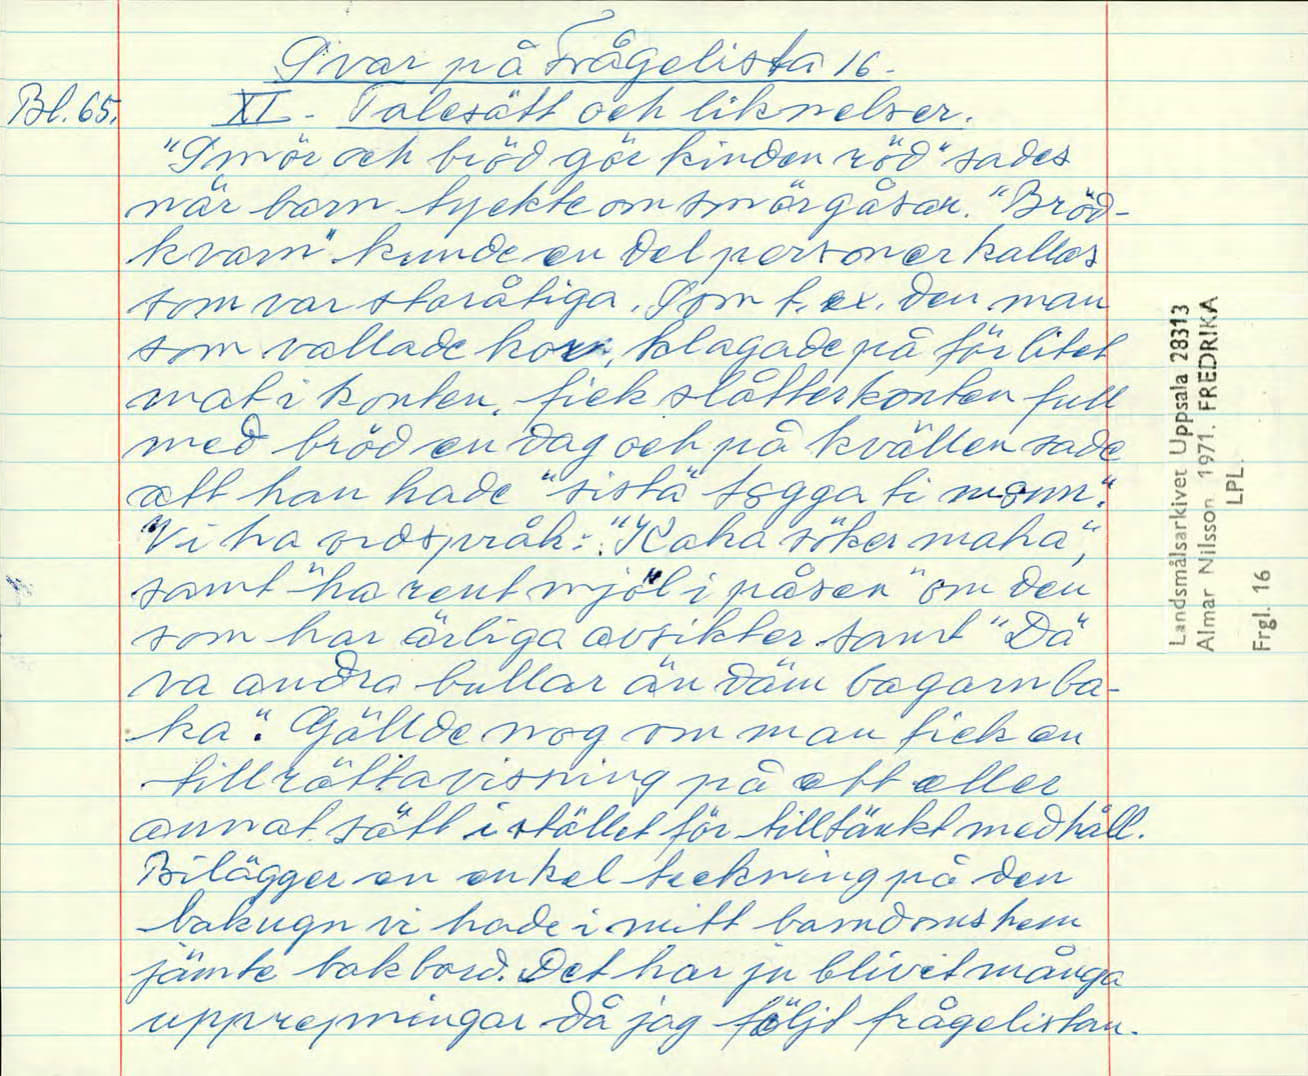 Svar på Frågelista 16.
Bl. 65. XI. Talesätt och liknelser.
"Smör och bröd gör kinden röd" sades
när barn tyckte om smörgåsar. "Bröd-
kvarn" kunde en del personer kallas
som var storätiga. Som t. ex. den man
som vallade kor, klagade på för litet
mat i konten, fick slåtterkonten full
med bröd en dag och på kvällen sade
att han hade "sistä" togga ti monn".
Vi ha ordspråk: "Kaka söker maka",
samt "ha rent mjöl i påsen" om den
som har ärliga avsikter samt "Dä
va andra bullar än däm bagarn ba-
ka". Gällde nog om man fick en
tillrättavisning på ett eller
annat sätt i stället för tilltänkt medhåll.
Bilägger en enkel teckning på den
bakugn vi hade i mitt barndomshem
jämte bakbord. Det har ju blivit många
upprepningar då jag följt frågelistan.
Landsmålsarkivet Uppsala 28313
Almar Nilsson 1971. FREDRIKA
LPL.
Frgl. 16